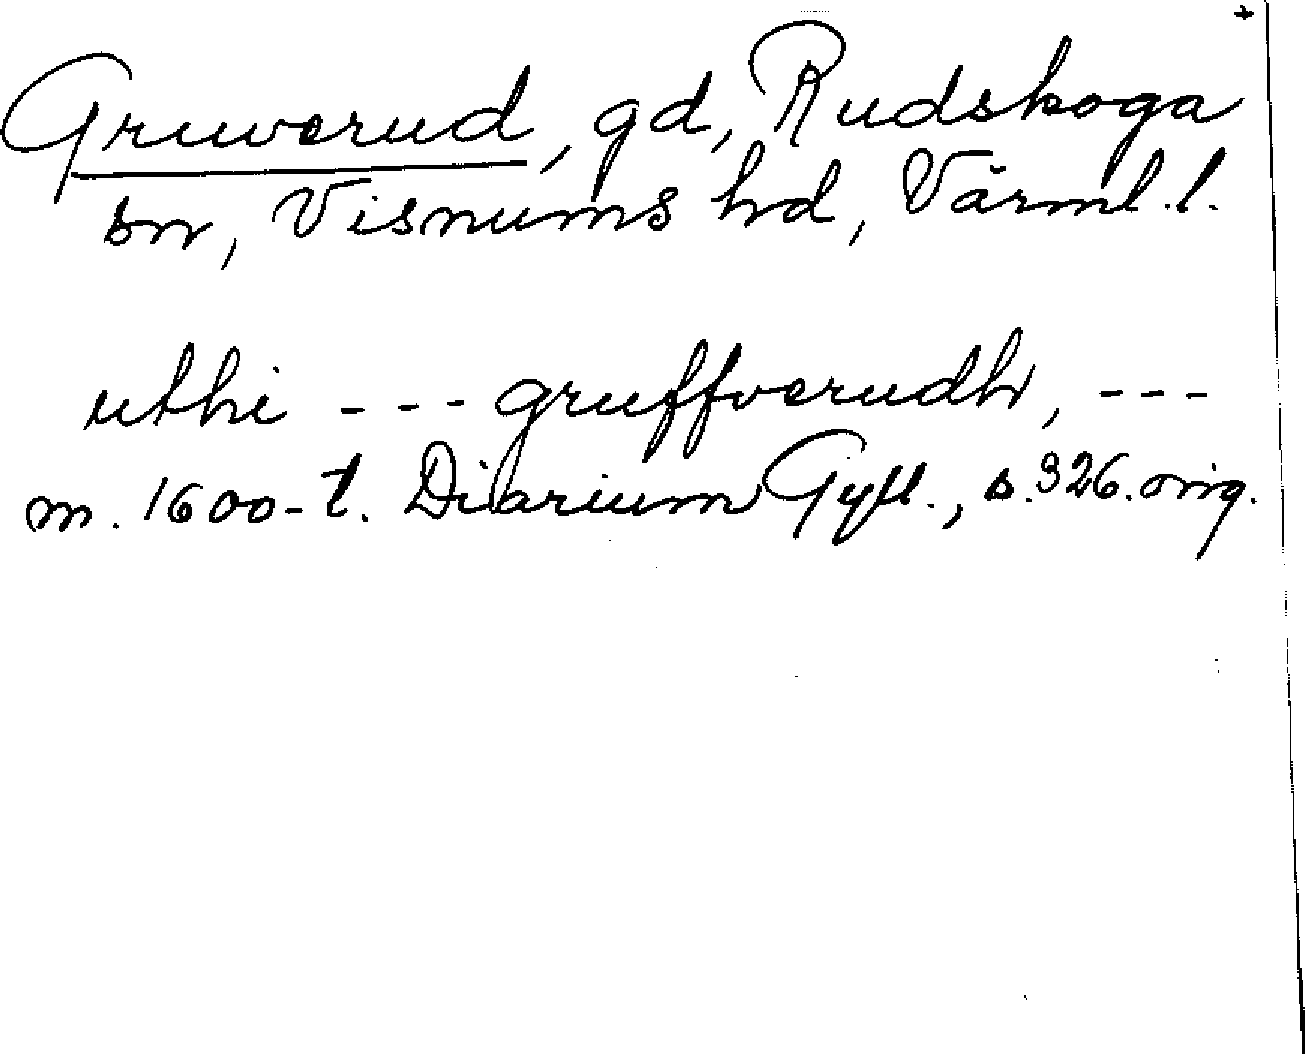 Gruverud, gd, Rudskoga
sn, Visnums hd, Värml. l.
uthi --- gruffverudh, ---
m. 1600-t. Diarium Gyll., s. 326. orig.